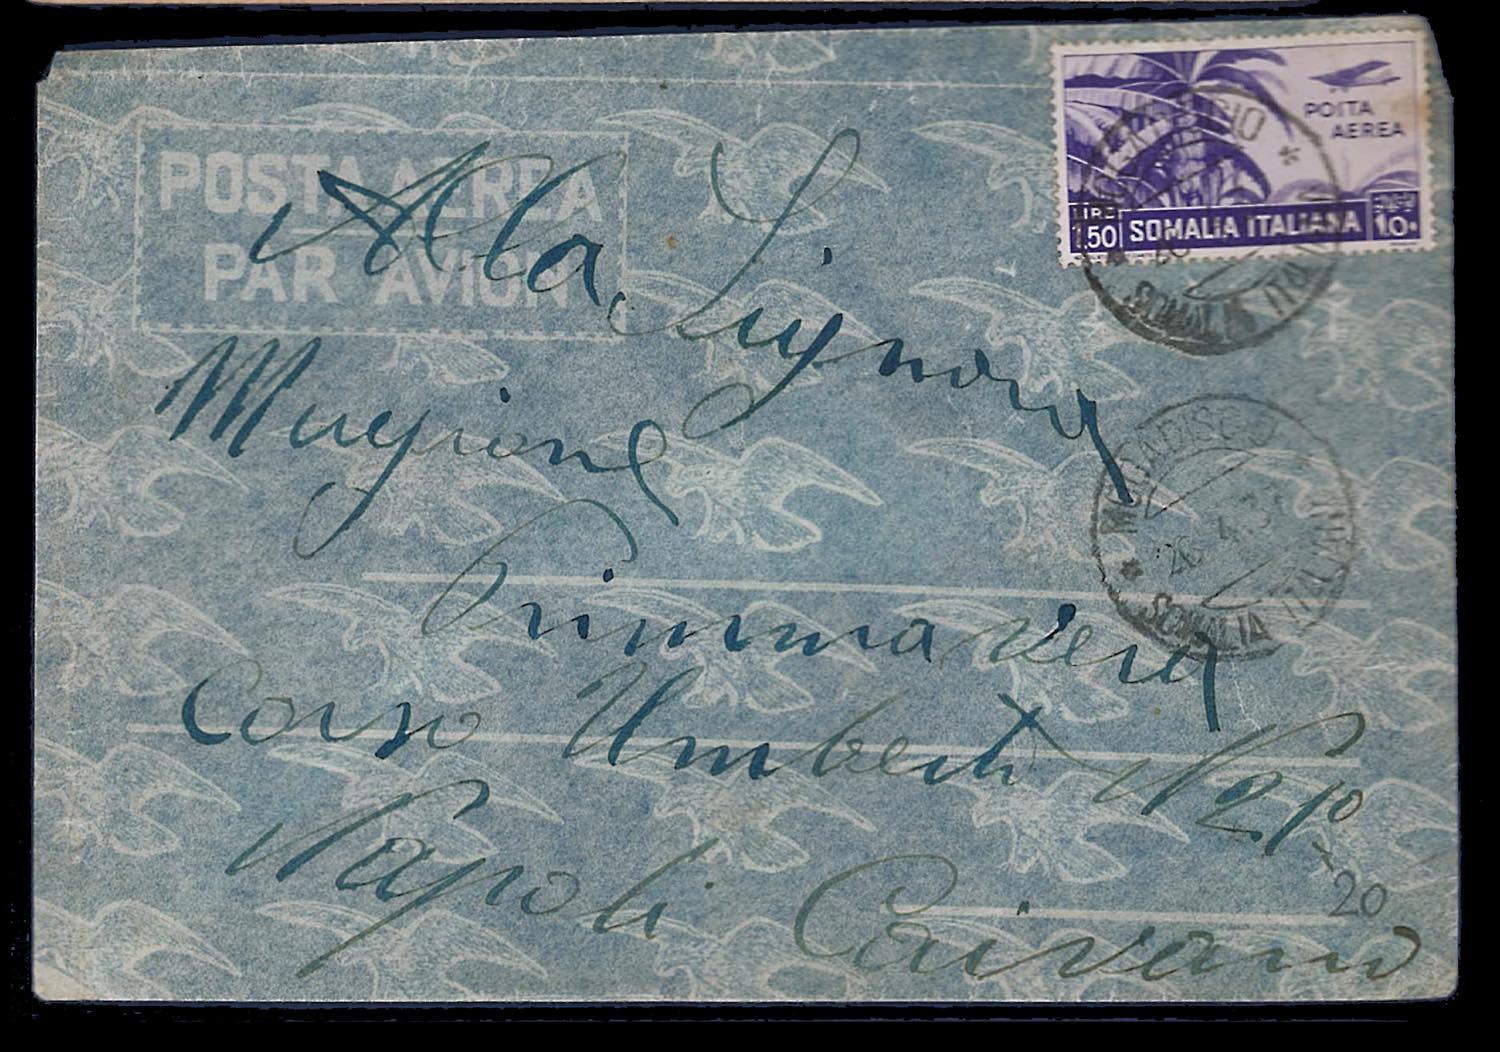 POSTA AEREA
PAR AVION
POSTA
AEREA
LIRE
1.50
SOMALIA ITALIANA
MOGADISCIO
SOMALIA ITALIANA
MOGADISCIO
26. 4. 37
SOMALIA ITALIANA
Alla Signora
Mugione
Primmavera
Corso Umberti N
Napoli Caivano
20